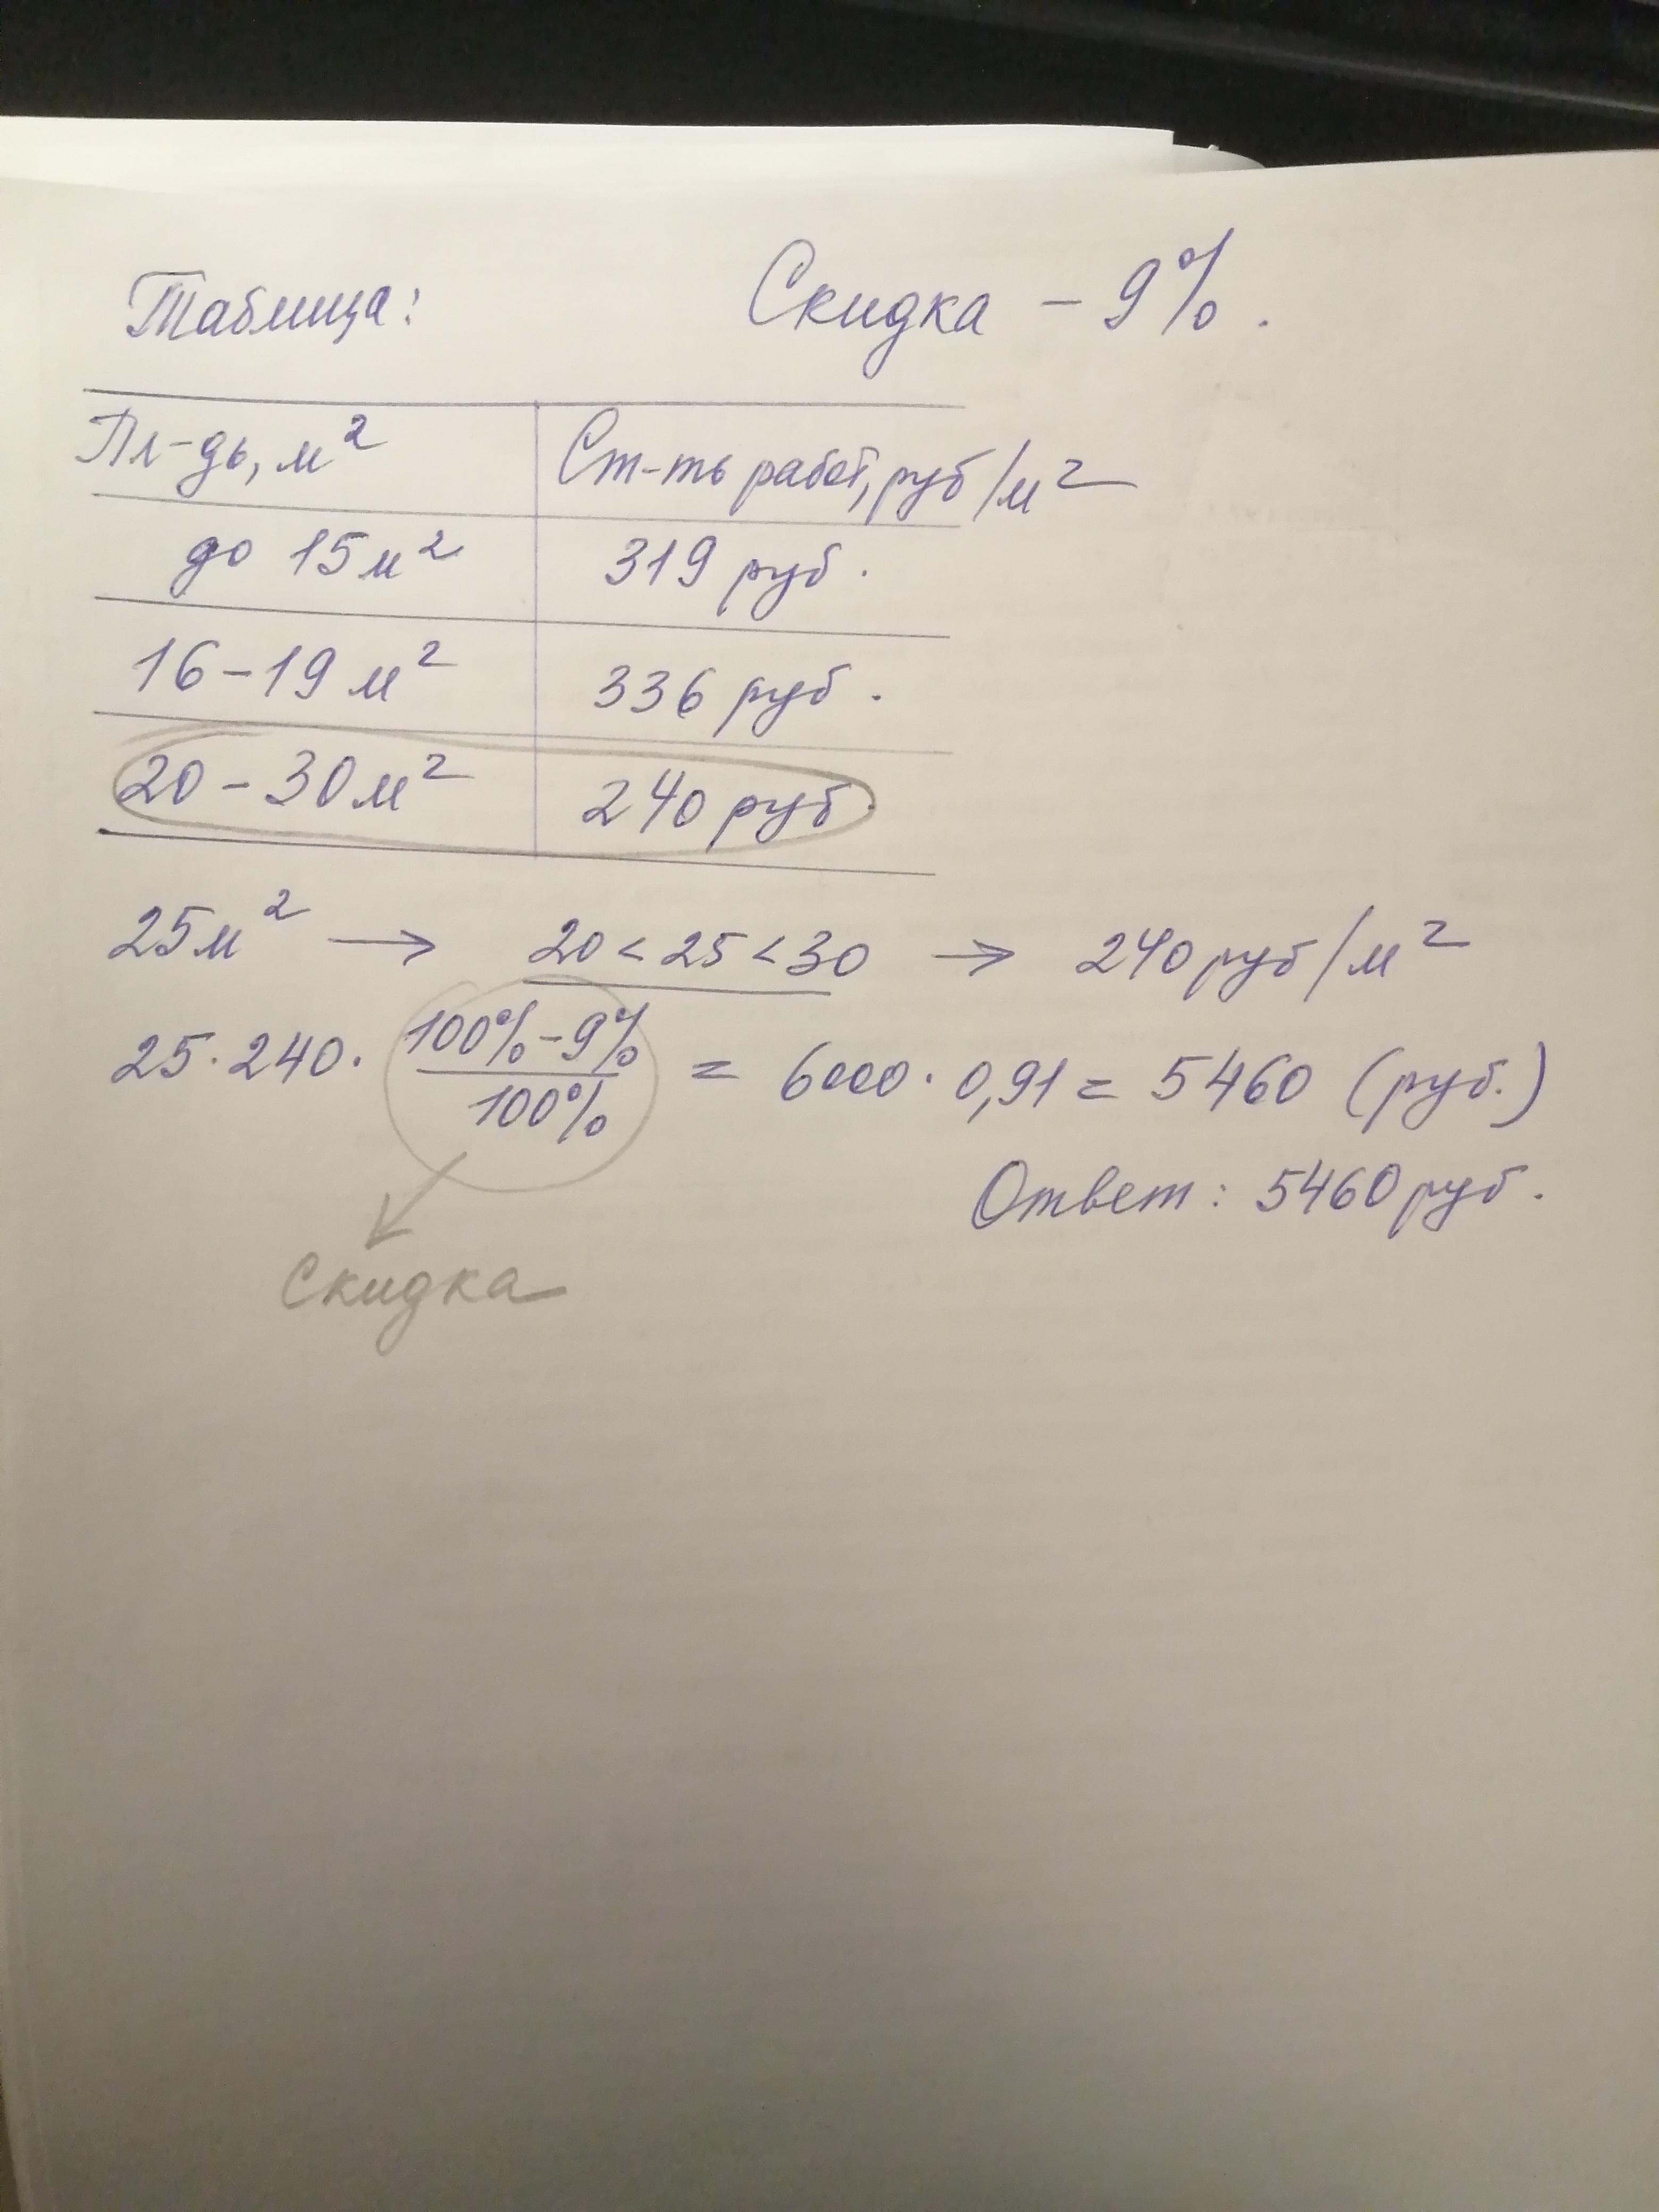 Таблица:
Скидка - 9%.
Пл-дь, м²
Ст-ть работ, руб/м²
до 15 м²
319 руб.
16-19 м²
336 руб.
20-30 м²
240 руб
25 м² → 20<25<30 → 240 руб/м²
25·240· (100%-9%)/100% = 6000·0,91 = 5460 (руб.)
Ответ: 5460 руб.
Скидка